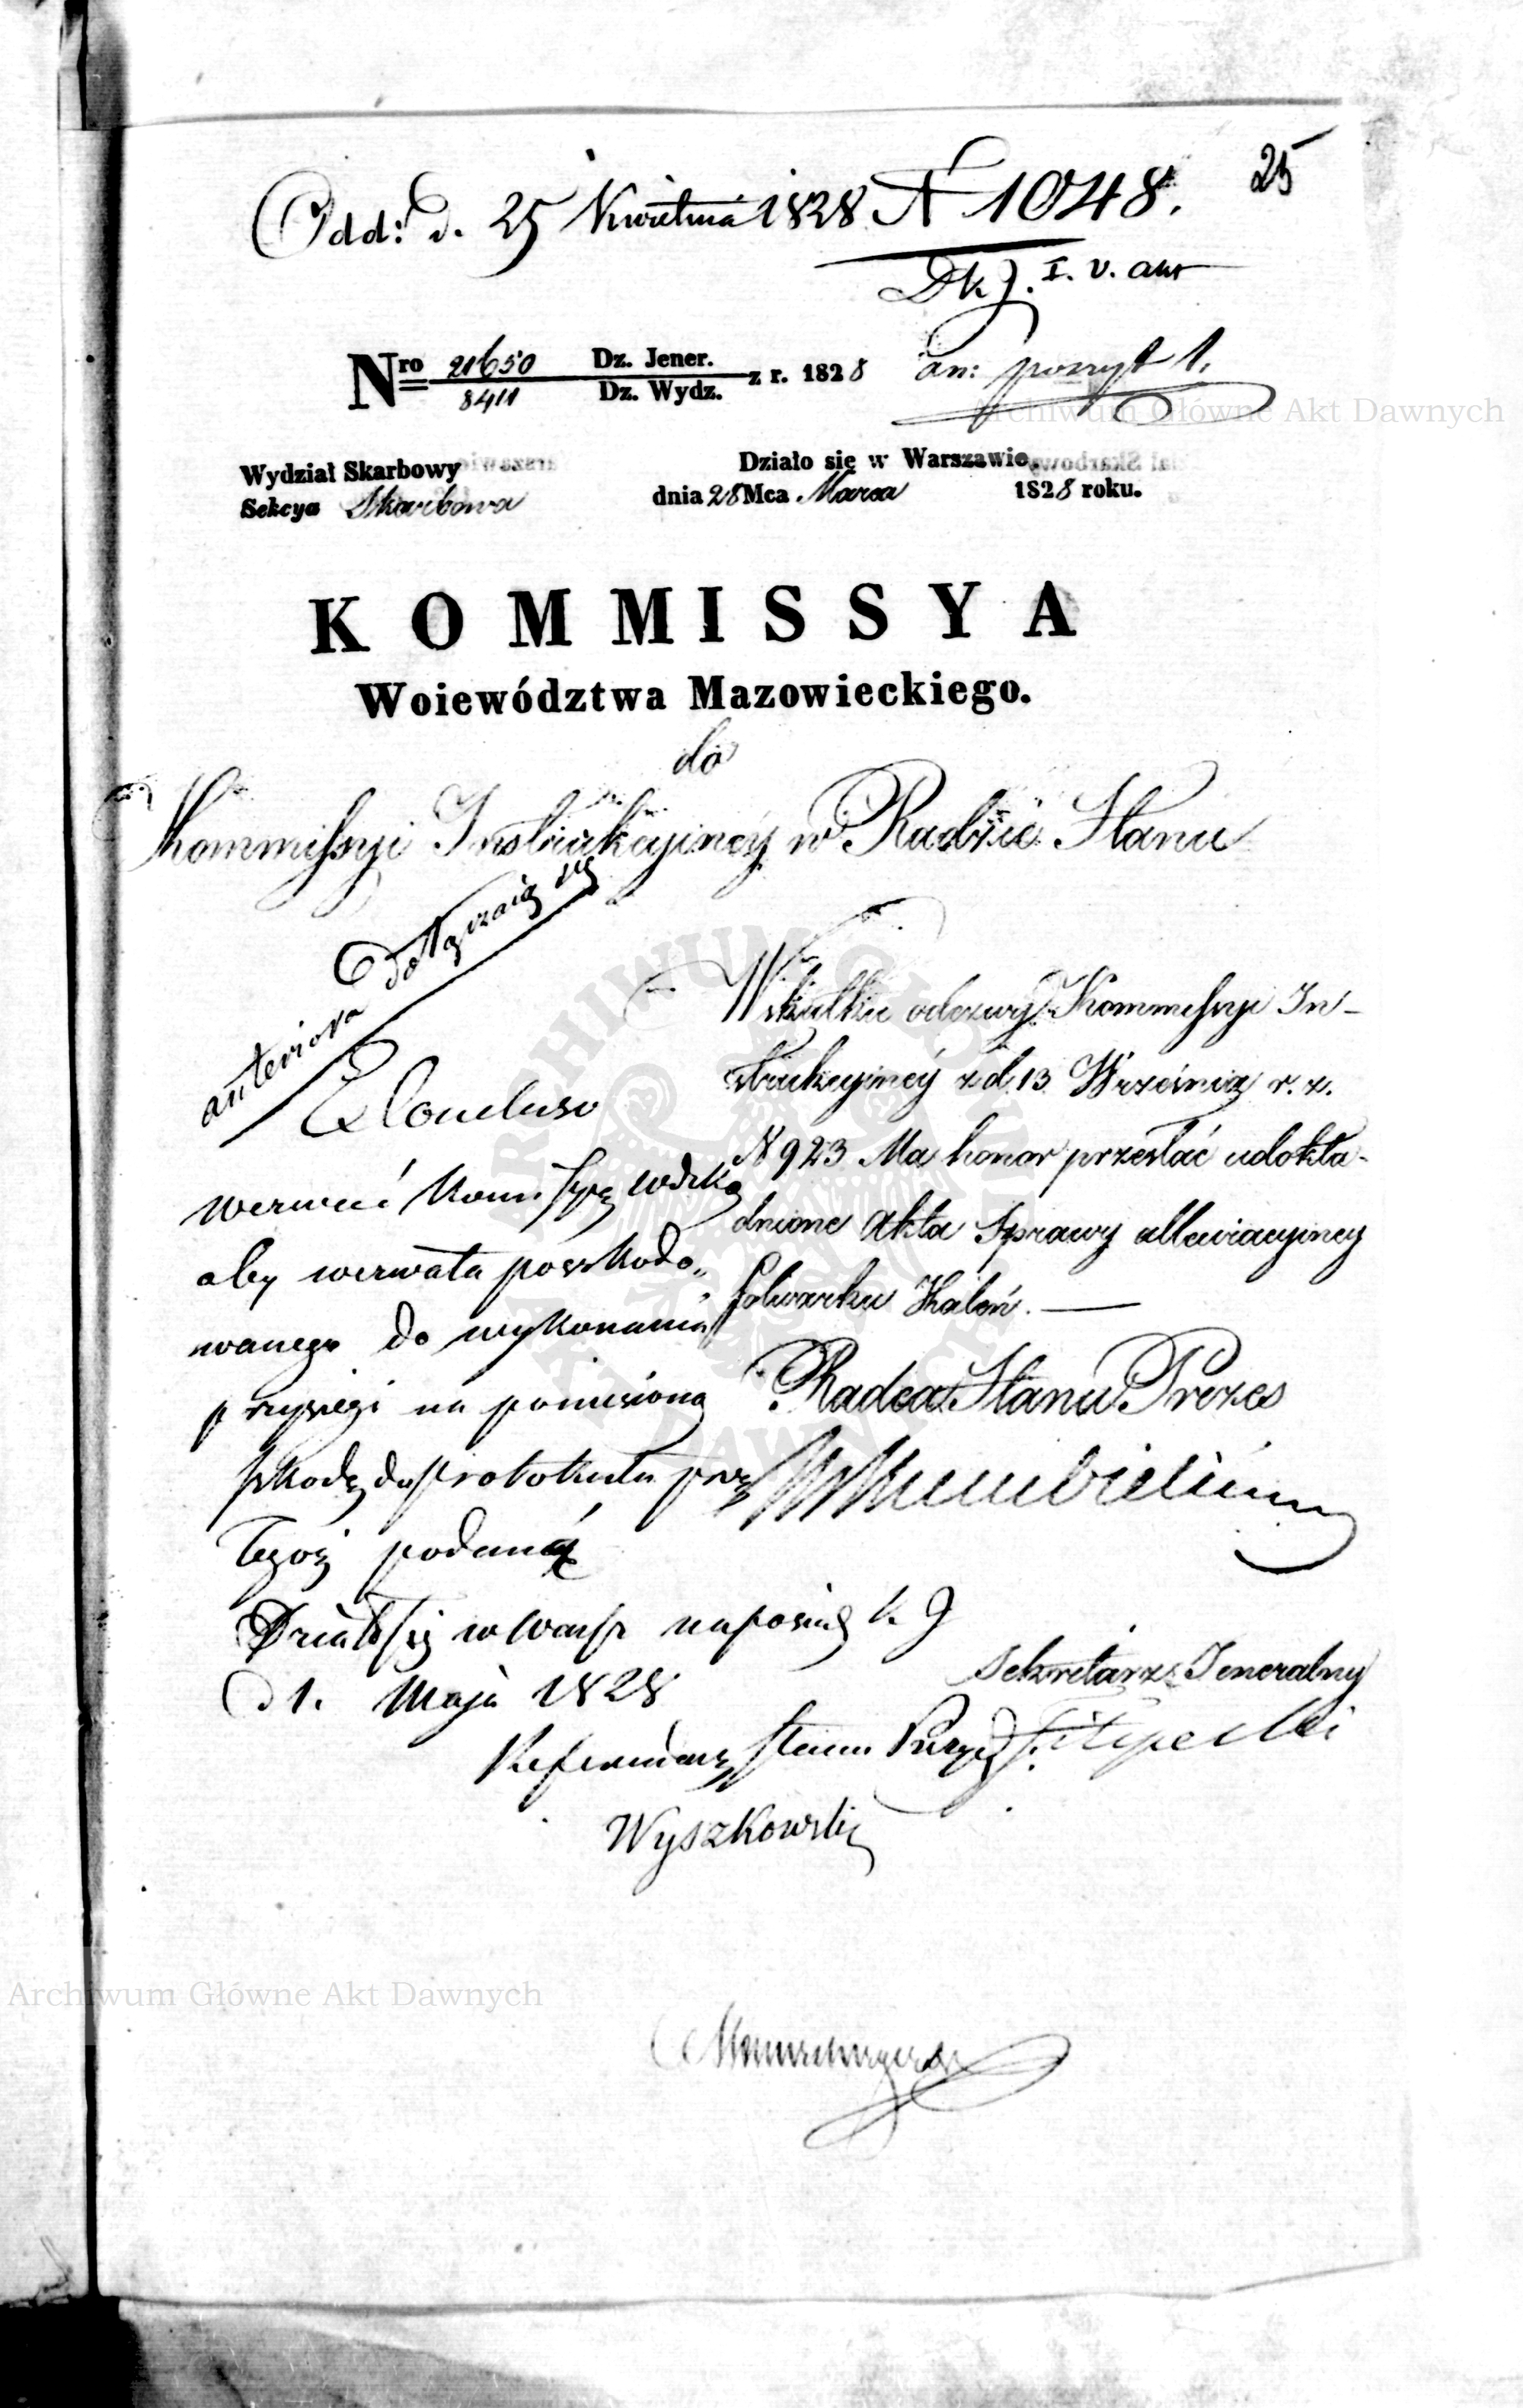 25
Odd: d. 25 Kwietnia 1828 N 1048.
Dk J. I. v. aut
an: poszyt 1.
Nro 21650 Dz. Jener. z r. 1828
8411 Dz. Wydz.
Wydział Skarbowy
Sekcya Skarbowa
Działo się w Warszawie
dnia 28 Mca Marca 1828 roku.
KOMMISSYA
Woiewództwa Mazowieckiego.
do
Kommissyi Instrukcyiney w Radzie Stanu
anteriora dołączaią się
W skutku odezwy Kommissyi In-
strukcyiney z d. 13 Września r. z.
N 923 Ma honor przesłać udokła-
dnione Akta Sprawy alleviacyiney
folwarku Kaleń.
Radca Stanu Prezes
Sekretarz Jeneralny
Filipecki
Ex Concluso
Wezwać Kommissyę Wdzką
aby wezwała poszkodo„
wanego do wykonania
przysięgi na poniesioną
szkodę do protokułu przez
tegoż podaną
Działo się w Warsz na posiedz k J
d 1. Maja 1828
Referendarz Stanu Prezyd
Wyszkowski
Archiwum Główne Akt Dawnych
Archiwum Główne Akt Dawnych
ARCHIWUM GŁÓWNE AKT DAWNYCH